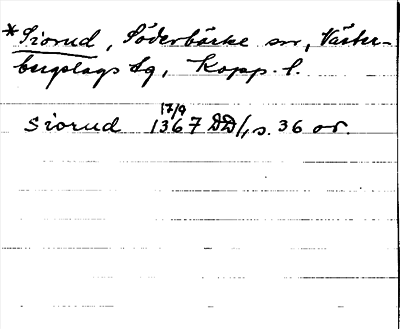 *Siorud, Söderbärke sn, Väster-
bergslags dg, Kopp. l.
17/9
Siorud 1367 DD/, s. 36 or.